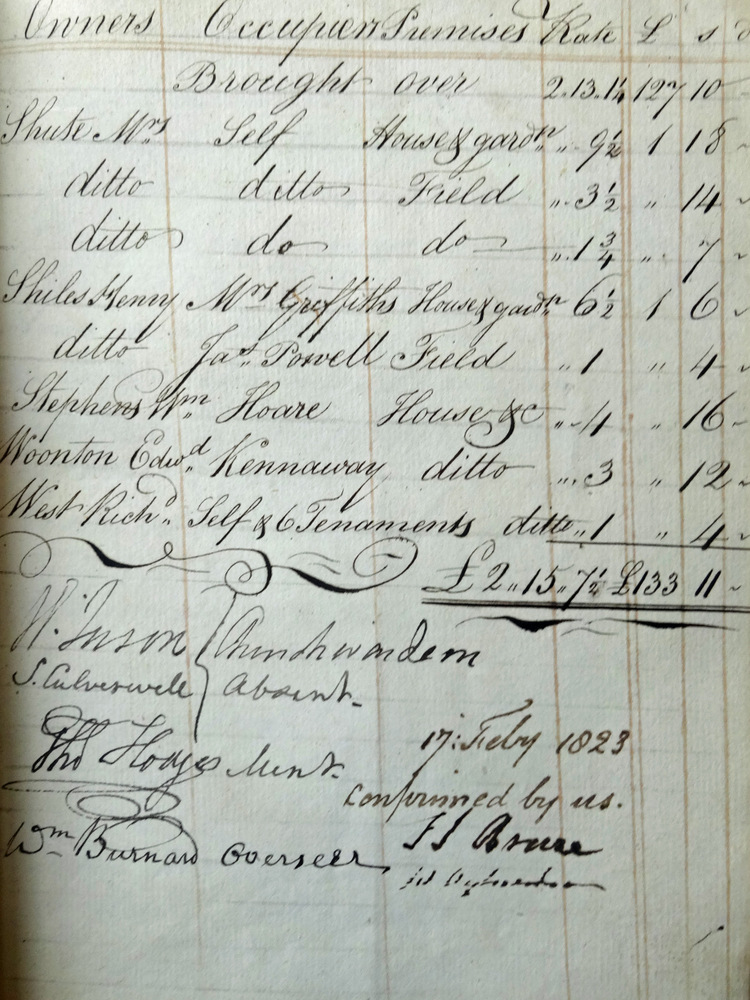 Owners Occupiers Premises Rate £ s d
Brought over 2.13.1¼ 127 10 -
Shute Mrs Self House & gardn „ 9½ 1 18 -
ditto ditto Field „ 3½ „ 14 -
ditto do do „ 1¾ „ 7 -
Shiles Henry Mrs Griffiths House & gardn 6½ 1 6 -
ditto Jas. Powell Field „ 1 „ 4 -
Stephens Wm Hoare House &c „ 4 „ 16 -
Woonton Edwd. Kennaway ditto „ 3 „ 12 -
West Richd. Self & 6 Tenaments ditto „ 1 „ 4 -
£ 2 „ 15 „ 7½ £133 11 -
W. Inson Churchwarden
S. Culverwell Absent.
Thos Hodges
17: Feby 1823
Confirmed by us.
Wm Burnard Overseer